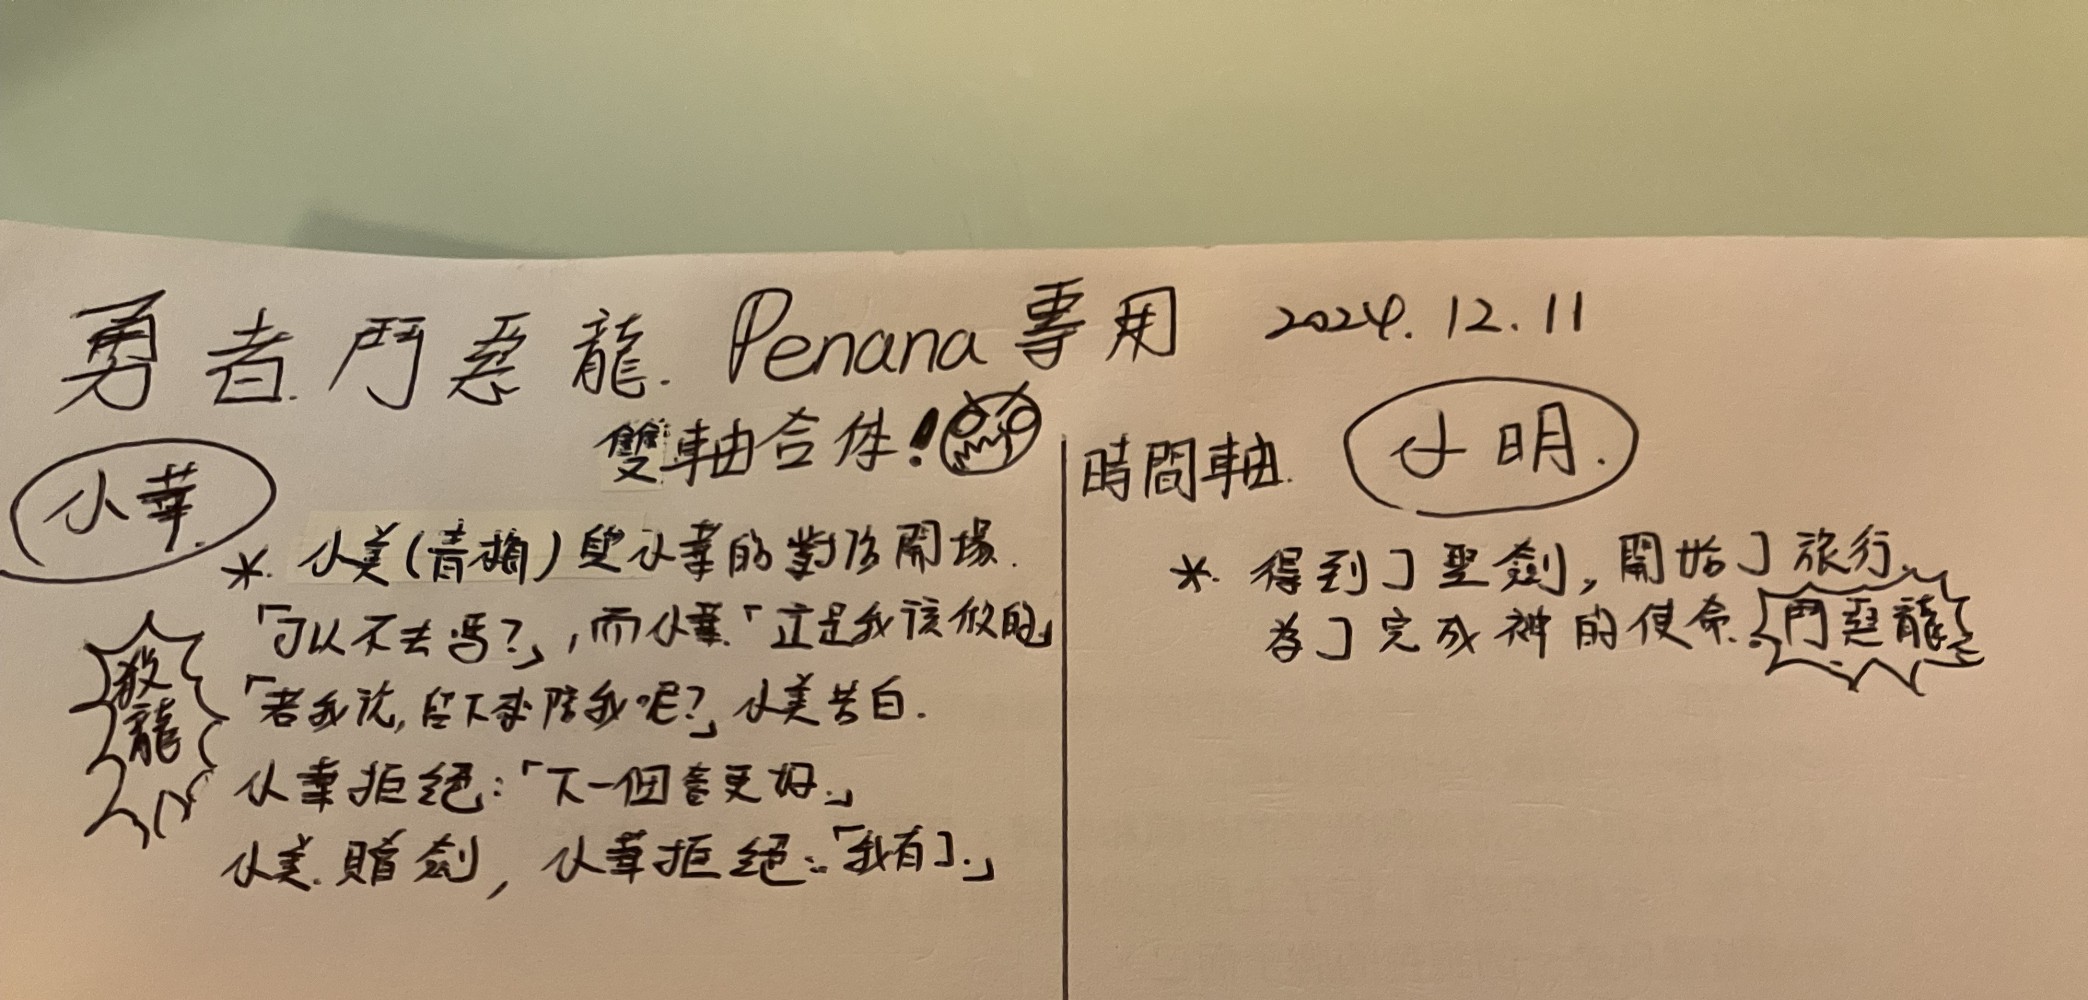 勇者鬥惡龍. Penana專用 2024.12.11
雙軸合併!
小華.
*. 小美(青梅)與小華的對話開場.
「可以不去嗎?」,而小華「這是我該做的」
「若我說,留下來陪我呢?」小美告白.
小華拒絕:「下一個會更好.」
小美.贈劍,小華拒絕:「我有了.」
殺龍
時間軸.
小明.
*. 得到了聖劍,開始了旅行、
為了完成神的使命.鬥惡龍